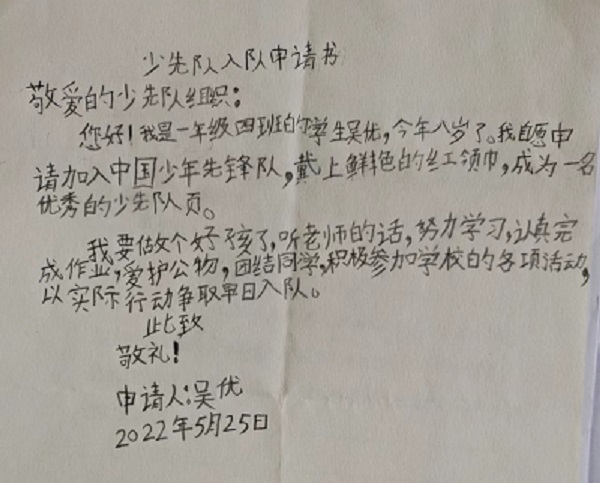 少先队入队申请书
敬爱的少先队组织：
您好！我是一年级四班的学生吴优，今年八岁了。我自愿申
请加入中国少年先锋队，戴上鲜艳的红领巾，成为一名
优秀的少先队员。
我要做个好孩子，听老师的话，努力学习，认真完
成作业，爱护公物，团结同学，积极参加学校的各项活动，
以实际行动争取早日入队。
此致
敬礼！
申请人：吴优
2022年5月25日